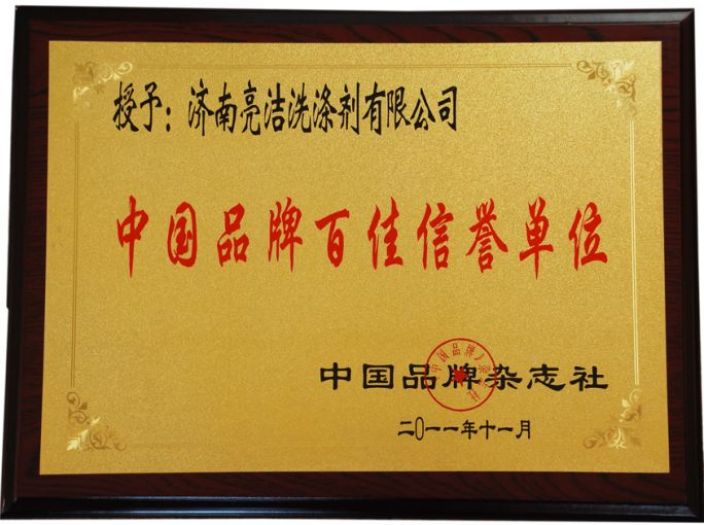 授予：济南亮洁洗涤剂有限公司
中国品牌百佳信誉单位
中国品牌杂志社
二0一一年十一月